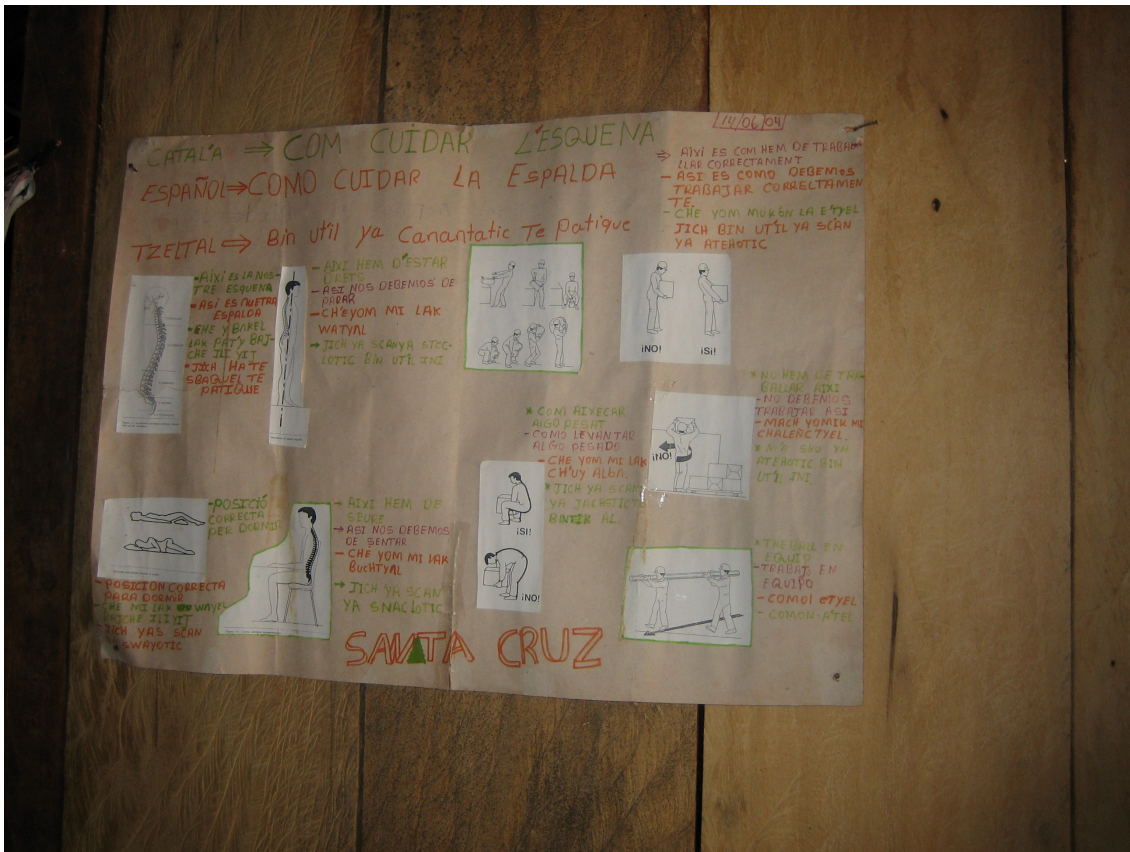 14/06/04
CATALÀ ⇒ COM CUIDAR L'ESQUENA
ESPAÑOL ⇒ COMO CUIDAR LA ESPALDA
TZELTAL ⇒ Bin util ya Canantatic Te patique
⇒ AIXI ES COM HEM DE TRABA-
LLAR CORRECTAMENT
- ASI ES COMO DEBEMOS
TRABAJAR CORRECTAMEN
TE.
- CHE YOM MUKÓN LA ETYEL
JICH BIN UTÍL YA SCAN
YA ATEHOTIC
- AIXI ES LA NOS
TRE ESQUENA
- ASI ES NUETRA
ESPALDA
- CHE Y BAKEL
LAK PAT'Y BAJ-
CHE ILI YIT
- JICH HATE
SBAQUEL TE
PATIQUE
- AIXI HEM D'ESTAR
DRETS
- ASI NOS DEBEMOS DE
PARAR
- CH'EYOM MI LAK
WATYAL
→ JICH YA SCAN YA STEC-
LOTIC BIN UTIL INI
¡NO! ¡SI!
* NO HEM DE TRA-
BALLAR AIXI
- NO DEBEMOS
TRABAJAR ASI
- MACH YOMIK MI
CHALEÑCTYEL.
YA
ATEHOTIC BIN
UTÍL INI.
¡NO!
* COM AIXECAR
ALGO PESAT
- COMO LEVANTAR
ALGO PESADO
- CHE YOM MI LAK
CH'UY ALBA.
* JICH YA SCAN
¡SI!
¡NO!
- POSICIÓ
CORRECTA
PER DORMIR
- POSICION CORRECTA
PARA DORMIR
- CHE MI LAK WAYEL
BAJCHE ILI YIT
JICH YAS SCAN
SWAYOTIC
→ AIXI HEM DE
SEURE
→ ASI NOS DEBEMOS
DE SENTAR
- CHE YOM MI LAK
BUCHTYAL
→ JICH YA SCAN
YA SNACLOTIC
* TREBALL EN
EQUIPO
- TRABAJO EN
EQUIPO
- COMOL ETYEL
- COMON A'TEL
SANTA CRUZ